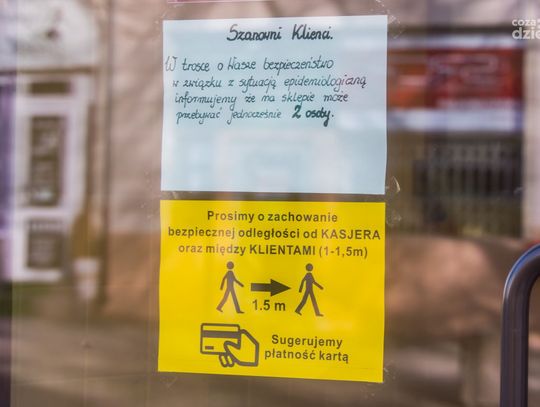 Szanowni Klienci.
W trosce o Wasze bezpieczeństwo
w związku z sytuacją epidemiologiczną
informujemy że na sklepie może
przebywać jednocześnie 2 osoby.
Prosimy o zachowanie
bezpiecznej odległości od KASJERA
oraz między KLIENTAMI (1-1,5m)
1.5 m
Sugerujemy
płatność kartą